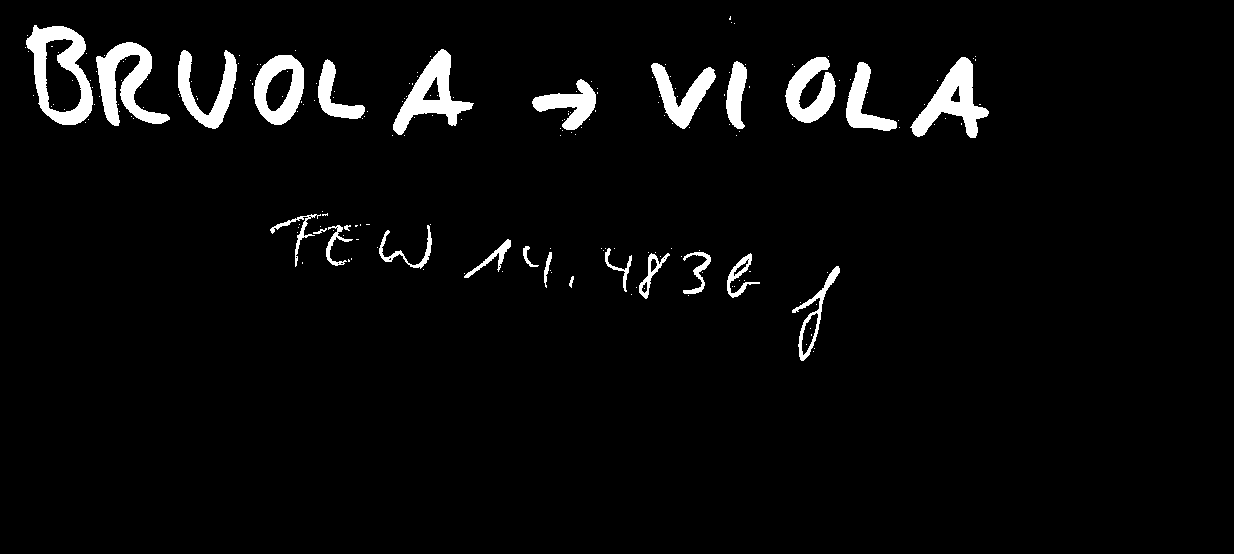 BRUOLA → VIOLA
FEW 14.483b f